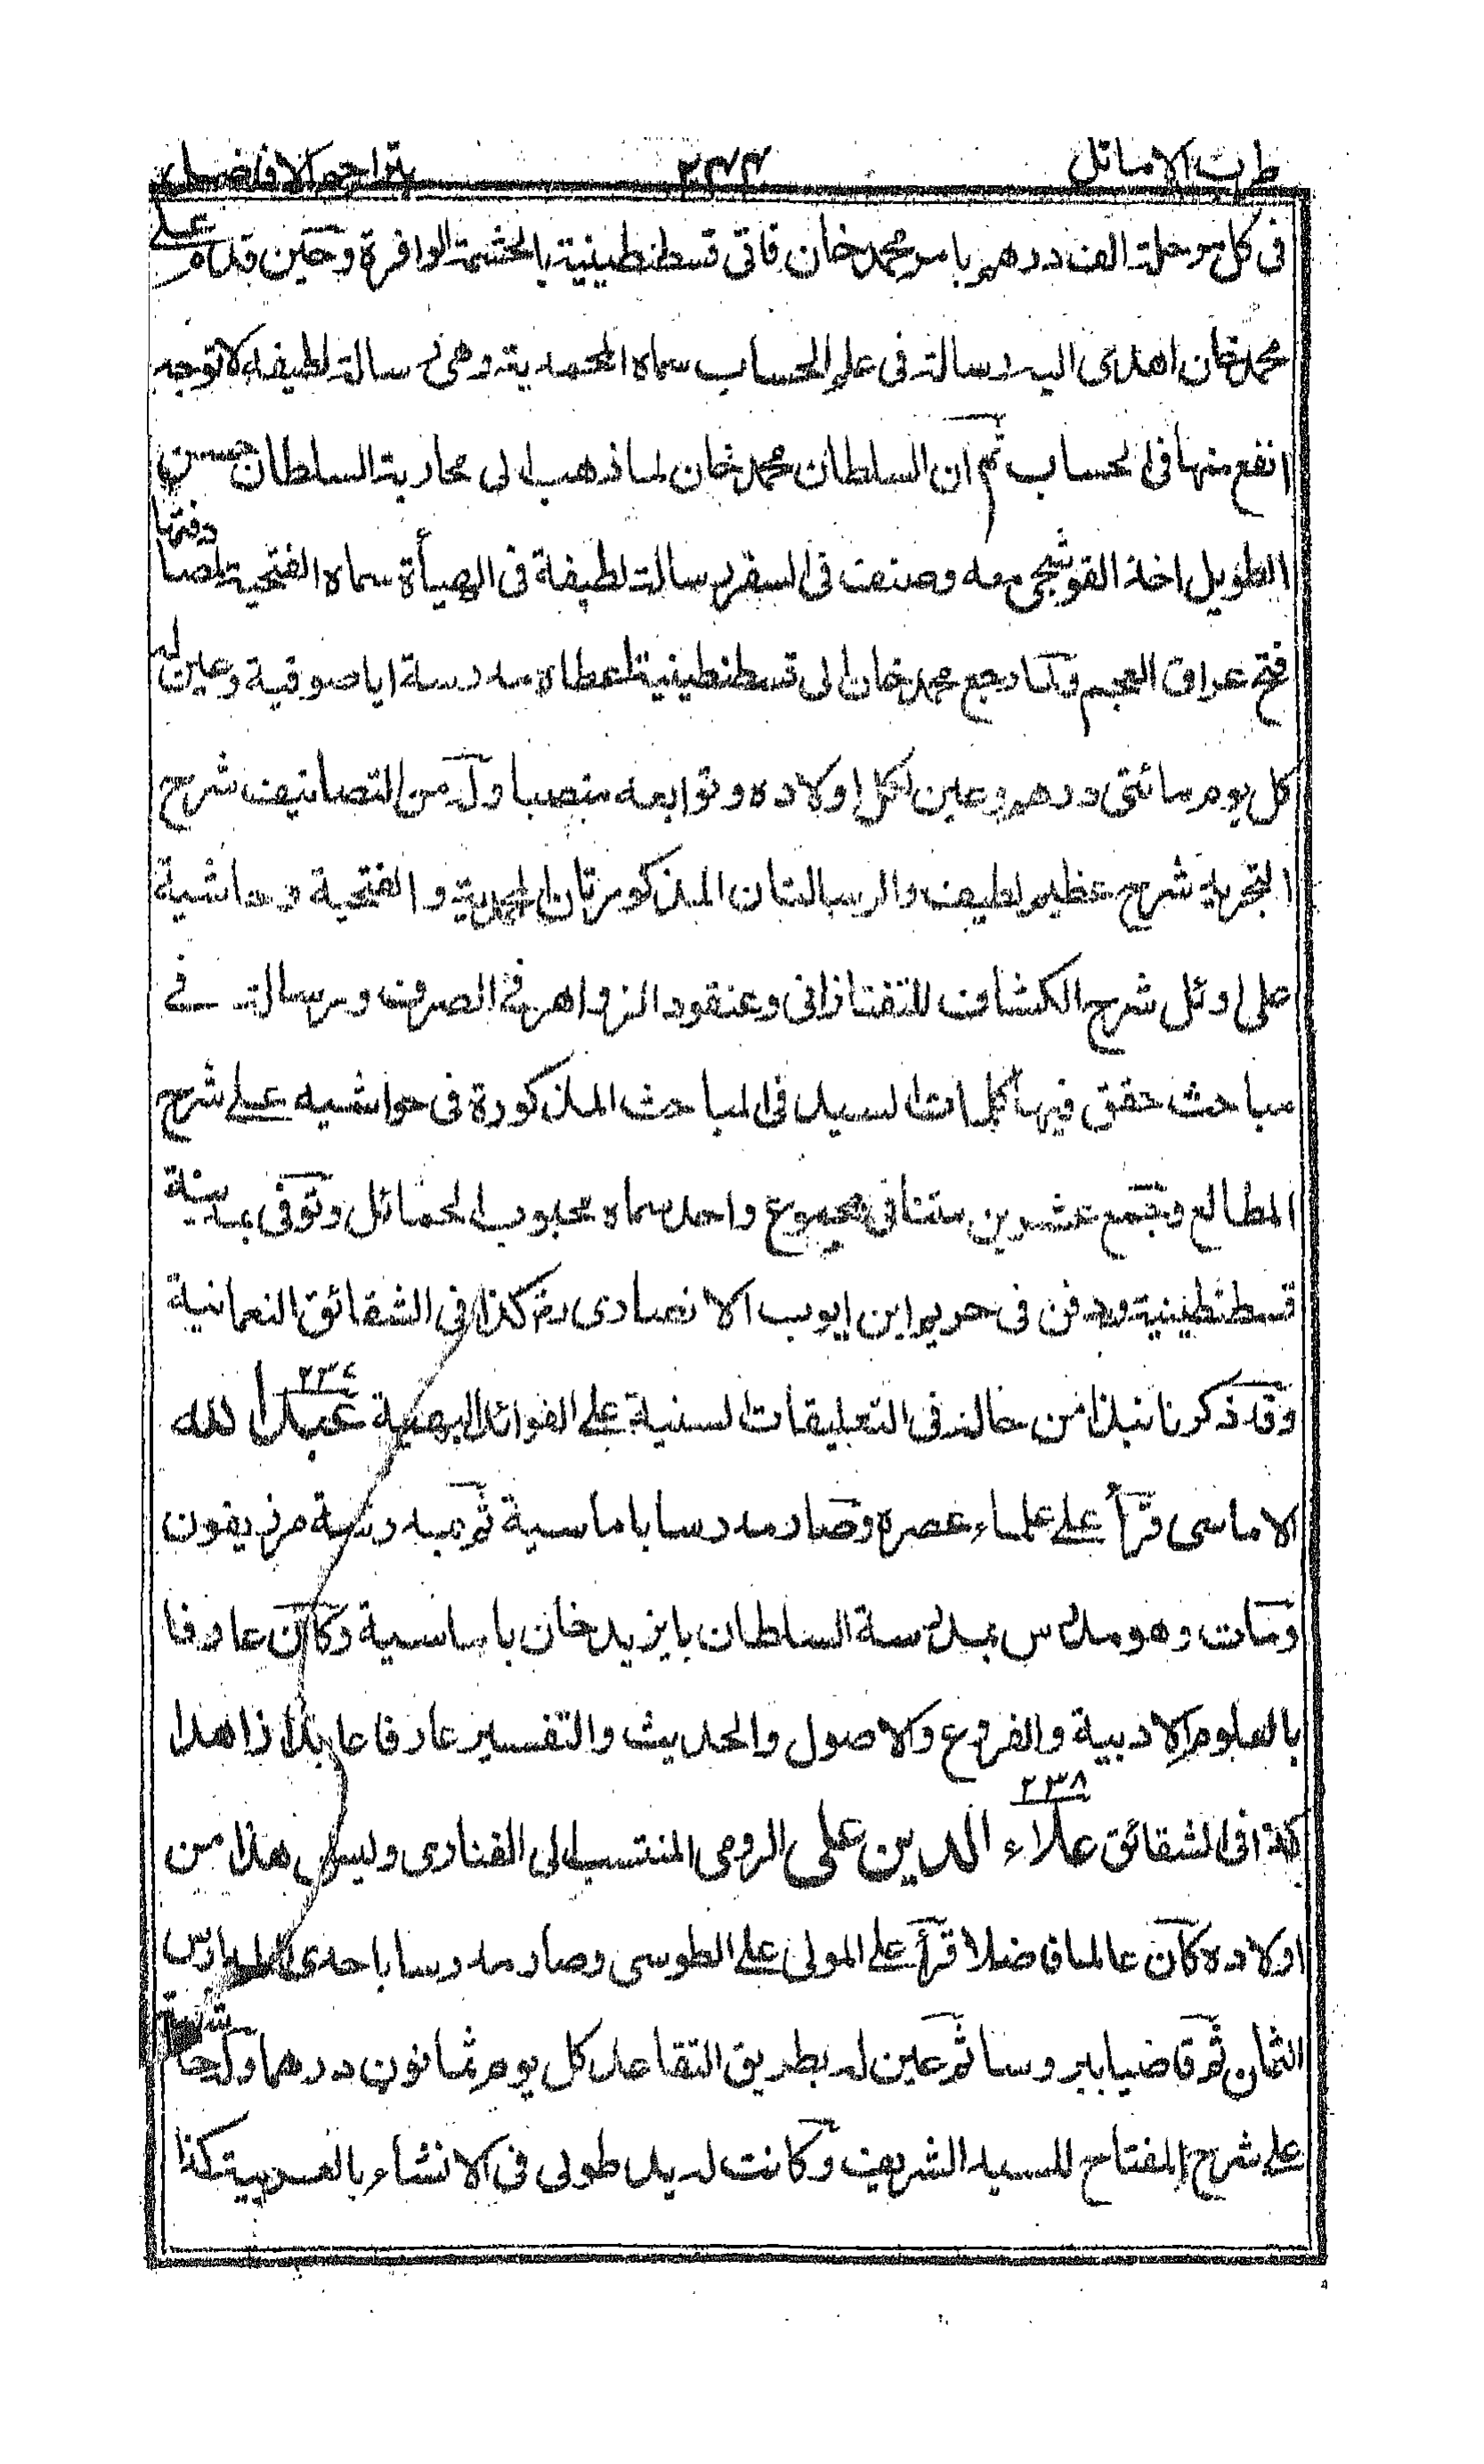 طرب الاماثل ٢٣٣ بتراجم الافاضل
فى كل مرحلة الف درهم بامر محمد خان فاتى قسطنطينية بالحشمة الوافرة وحين قدم على
محمد خان اهدى اليه رسالة فى علم الحساب سماه المحمدية وهى رسالة لطيفه لا توجد
انفع منها فى الحساب ثم ان السلطان محمد خان لما ذهب الى محاربة السلطان حسن
الطويل اخذ القوشجى معه وصنف فى السفر رسالة لطيفة فى الهيأة سماه الفتحية لمصادفتها
فتح عراق العجم ولما رجع محمد خان الى قسطنطينية اعطاه مدرسة ايا صوفية وعين له
كل يوم مائتى درهم وعين لكل اولاده وتوابعه منصبا وله من التصانيف شرح
التجريد شرح عظيم لطيف والرسالتان المذكورتان المحمدية والفتحية وحاشية
على اوئل شرح الكشاف للتفتازانى وعنقود الزواهر فى الصرف ورسالة فى
مباحث حقق فيها كلمات السيد فى المباحث المذكورة فى حواشيه على شرح
المطالع وجمع عشرين متنا فى مجموع واحد سماه محبوب الحمائل وتوفى بمدينة
قسطنطينية ودفن فى حريم ابن ايوب الانصارى رح كذا فى الشقائق النعمانية
وقد ذكرنا نبذا من حاله فى التعليقات السنية على الفوائد البهية ٢٣٤ عبد الله
الاماسى قرأ على علماء عصره وصار مدرسا باماسية ثم بمدرسة مرزيفون
ومات وهو مدرس بمدرسة السلطان بايزيد خان باماسية وكان عارفا
بالعلوم الادبية والفروع والاصول والحديث والتفسير عارفا عابدا زاهدا
كذا فى الشقائق ٢٣٨ علاء الدين على الرومى المنتسب الى الفنارى وليس هذا من
اولاده كان عالما فاضلا قرأ على المولى على الطوسى وصار مدرسا باحدى المدارس
الثمان ثم قاضيا ببروسا ثم عين له بطريق التقاعد كل يوم ثمانون درهما وله حاشية
على شرح المفتاح للسيد الشريف وكانت له يد طولى فى الانشاء بالعربية كذا